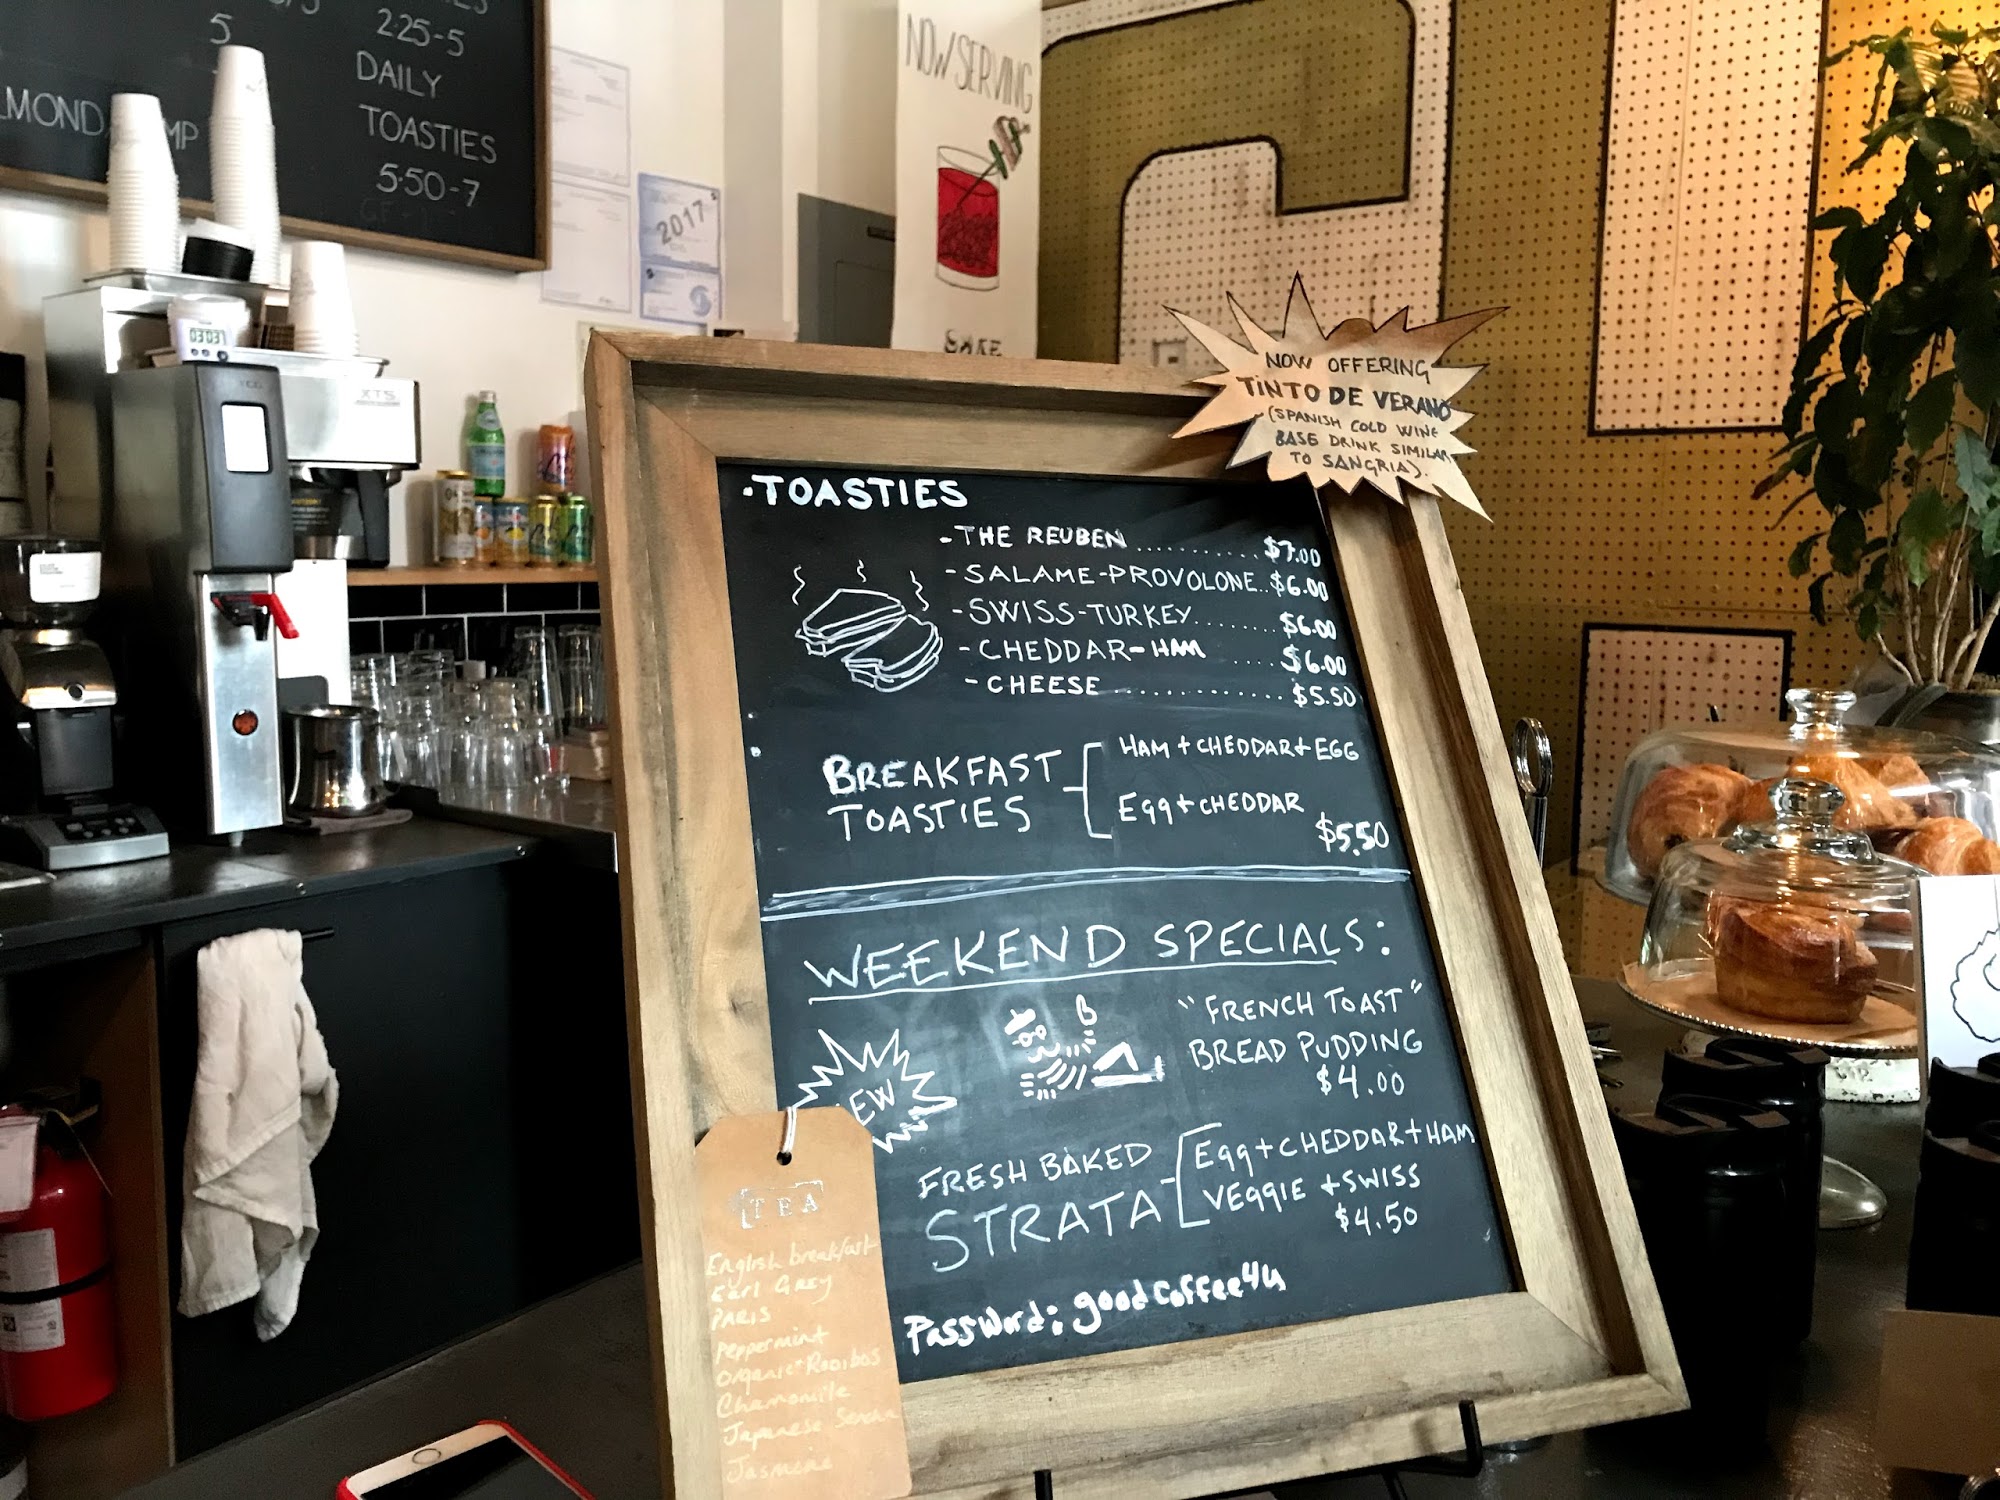 5
2.25-5
DAILY
TOASTIES
5.50-7
NOW SERVING
2017
03:03
XTS
NOW OFFERING
TINTO DE VERANO
(SPANISH COLD WINE
BASE DRINK SIMILAR
TO SANGRIA).
·TOASTIES
-THE REUBEN ........... $7.00
-SALAME-PROVOLONE..$6.00
-SWISS-TURKEY........$6.00
-CHEDDAR-HAM ....$6.00
-CHEESE ............. $5.50
BREAKFAST
TOASTIES
HAM + CHEDDAR + EGG
Egg + CHEDDAR
$5.50
WEEKEND SPECIALS:
"FRENCH TOAST"
BREAD PUDDING
$4.00
FRESH BAKED
STRATA
Egg + CHEDDAR + HAM
VEGGIE + SWISS
$4.50
Password: goodcoffee4u
TEA
English breakfast
Earl GREY
PARIS
Peppermint
Organic Rooibos
Chamomile
Japanese Sencha
Jasmine